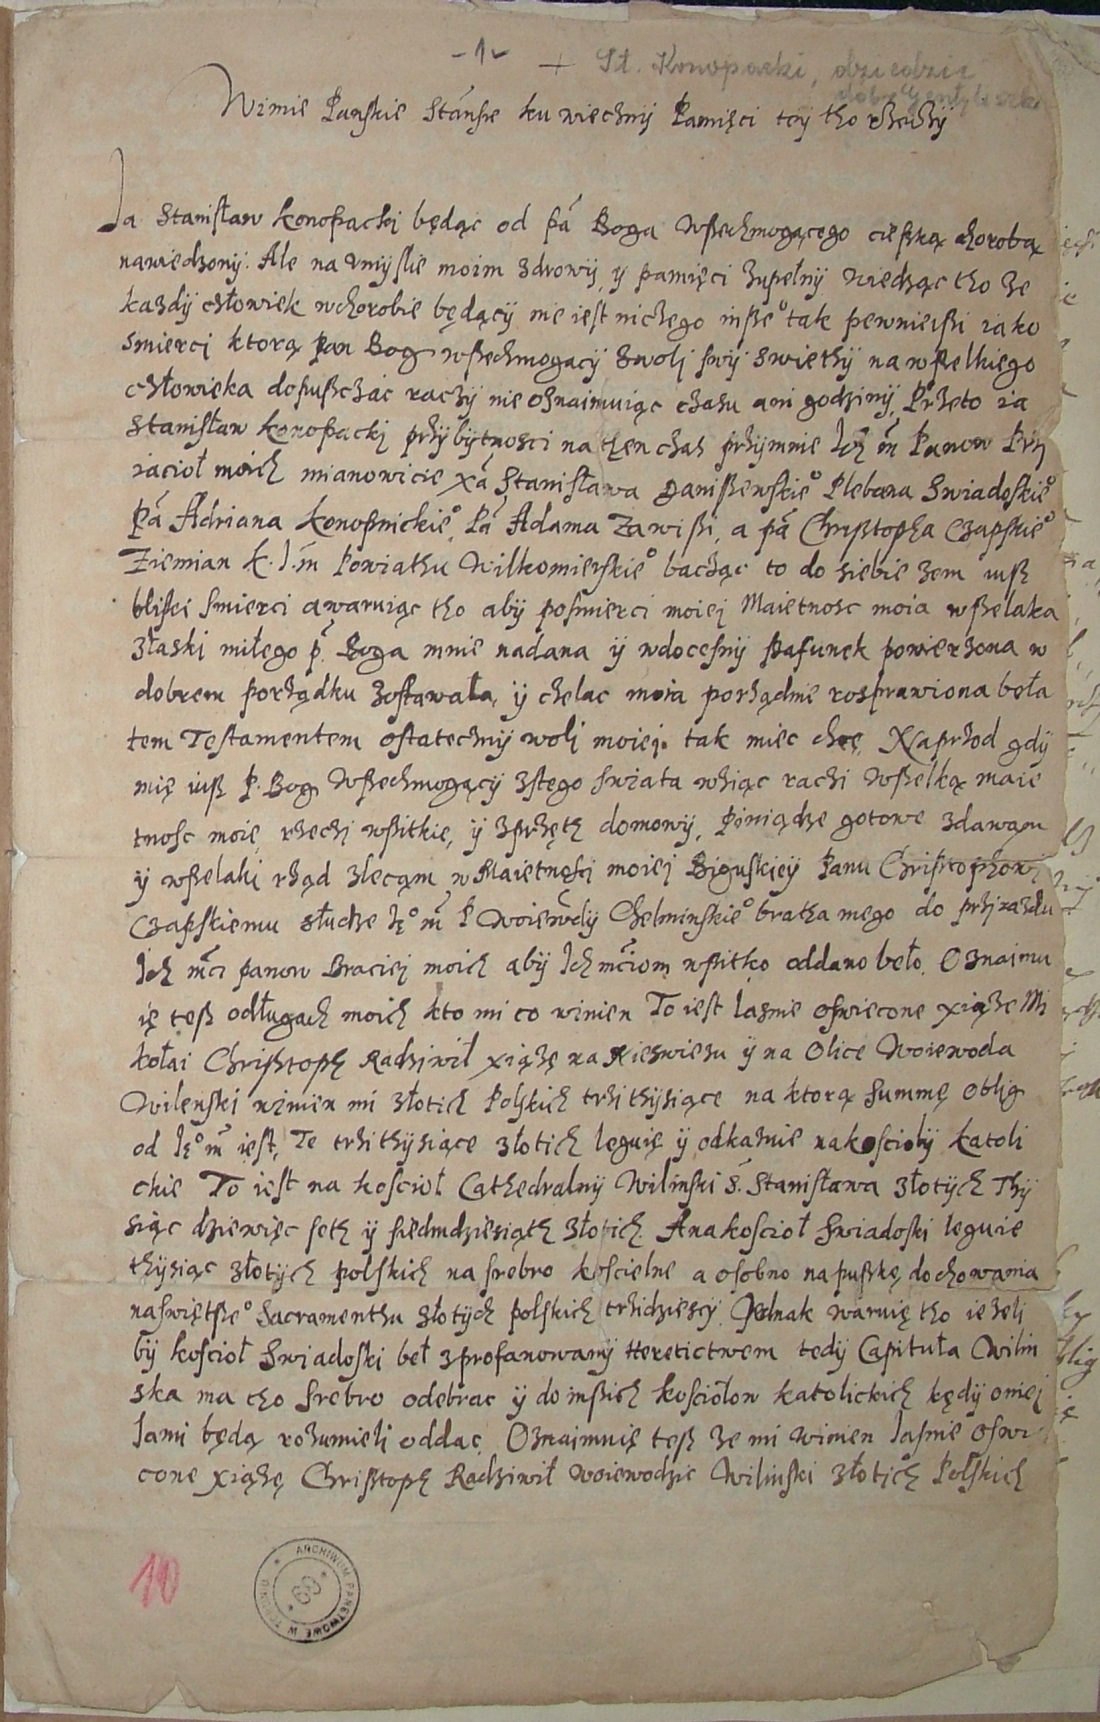 -1-
+ St. Konopacki, dziedzic
W imie Panskie Stansie ku wiecznÿ Pamięci teÿ tho rzeczÿ
Ja Stanisław Konopackj będąc od pá Boga Wssechmogącego cięszką chorobą
nawiedzonÿ. Ale na vmyslie moim zdrowÿ, y pamięci zupełnÿ wiedząc tho że
kazdÿ człowiek w chorobie będącÿ nie iest niczego insse° tak pewnieissi iako
smierci ktorą Pan Bog wssechmogacÿ z woli swÿ swiethÿ na wsselkiego
człowieka dopusczac raczÿ nie oznaimuiąc czasu ani godzinÿ, Przeto ia
Stanisław Konopackj przÿ bÿtnosci na then czas przÿmnie Ich m̃ Panow Prz
iacioł moich mianowicie xá Stanisława Danissewskie° Plebana Swiadoskie°
Pá Adriana Konopnickie°, Pá Adama Zawissi, a pá Christopha Czapskie°
Ziemian K. J. m̃ Powiathu Wilkomierskie° bacząc to do siebie żem iusz
bliski smierci a waruiąc tho abÿ posmierci moiej Maietnosc moia wsselaka
złaski miłego p. Boga mnie nadana ÿ wdocesnÿ szafunek powierzona w
dobrem porządku zostawała, ÿ chelac moia porządnie rosprawiona beła
tem Testamentem ostatecznÿ wolj moiej. tak miec chcę, Naprzod gdÿ
mię iusz P. Bog Wssechmogącÿ z stego swiata wziąc raczi Wsselką maie
tnosc moię, rzeczj wssitkie, ÿ zprzęth domowÿ, Piniądze gotowe zdawąm
ÿ wsselaki rząd zlecąm w Maietnosci moiej Biguskieÿ Panu Christophowj
Czapskiemu słudze Je° m̃ P Woiewodÿ Chelminskie° bratha mego do przÿiazdu
Ich mci panow Braciej moich abÿ Ich mciom wssitko oddano beło. Oznaimu
ię tesz odługach moich kto mi co winien To iest Iasnie oswiecone xiąże Mi
kołai Chrisztoph Radziwił xiążę na Nieswiezu ÿ na Olice Woiewoda
Wilenski winien mi złotich Polskich trzi thÿsiące na ktorą summę oblig
od Je° m̃ iest, Te trzi thÿsiące złotich leguię ÿ odkazuie na koscioły katoli
ckie To iest na koscioł Cathedralnÿ Wilinski S. Stanisława złotÿch Thÿ
siąc dziewięc seth ÿ siedmdziesiąth złotich. A na koscioł Swiadoski leguie
thÿsiąc złotÿch polskich na srebro koscielne a osobno na puszkę do chowania
naswiętsse° Sacramenthu złotÿch polskich trzidziescÿ. Jednak waruię tho iezeli
bÿ koscioł Swiadoski beł zprofanowanÿ Heretictwem tedÿ Capituła Wilin
ska ma tho srebro odebrac ÿ do inssich kosciołow katolickich kędÿ oniej
Iami będą rozumieli oddac. Oznaimuię tesz że mi winien Iasnie oswi
cone xiążę Chrisztoph Radziwił woiewodzic Wilinski złotich Polskich
10
ARCHIWUM PAŃSTWOWE W TORUNIU
69